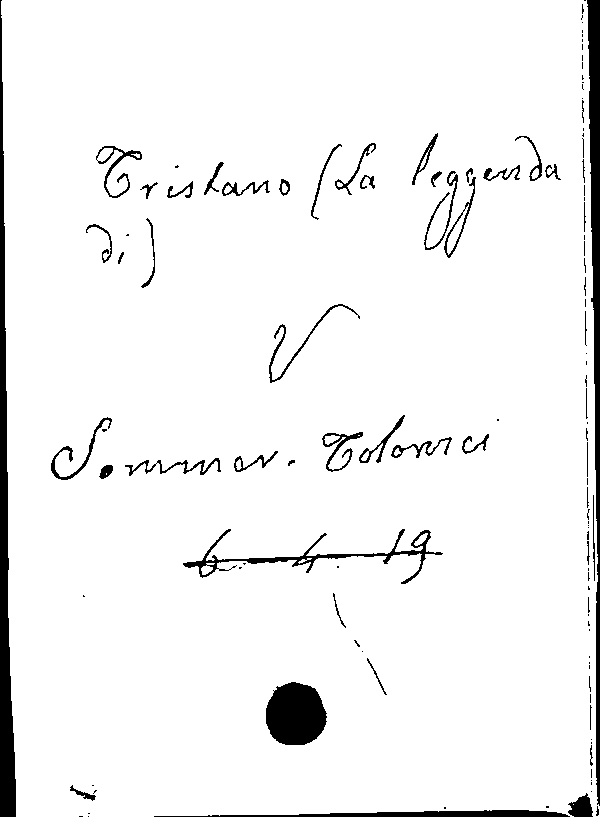 Tristano (La leggenda
di)
V
Sommer. Tolomei
6 4 19